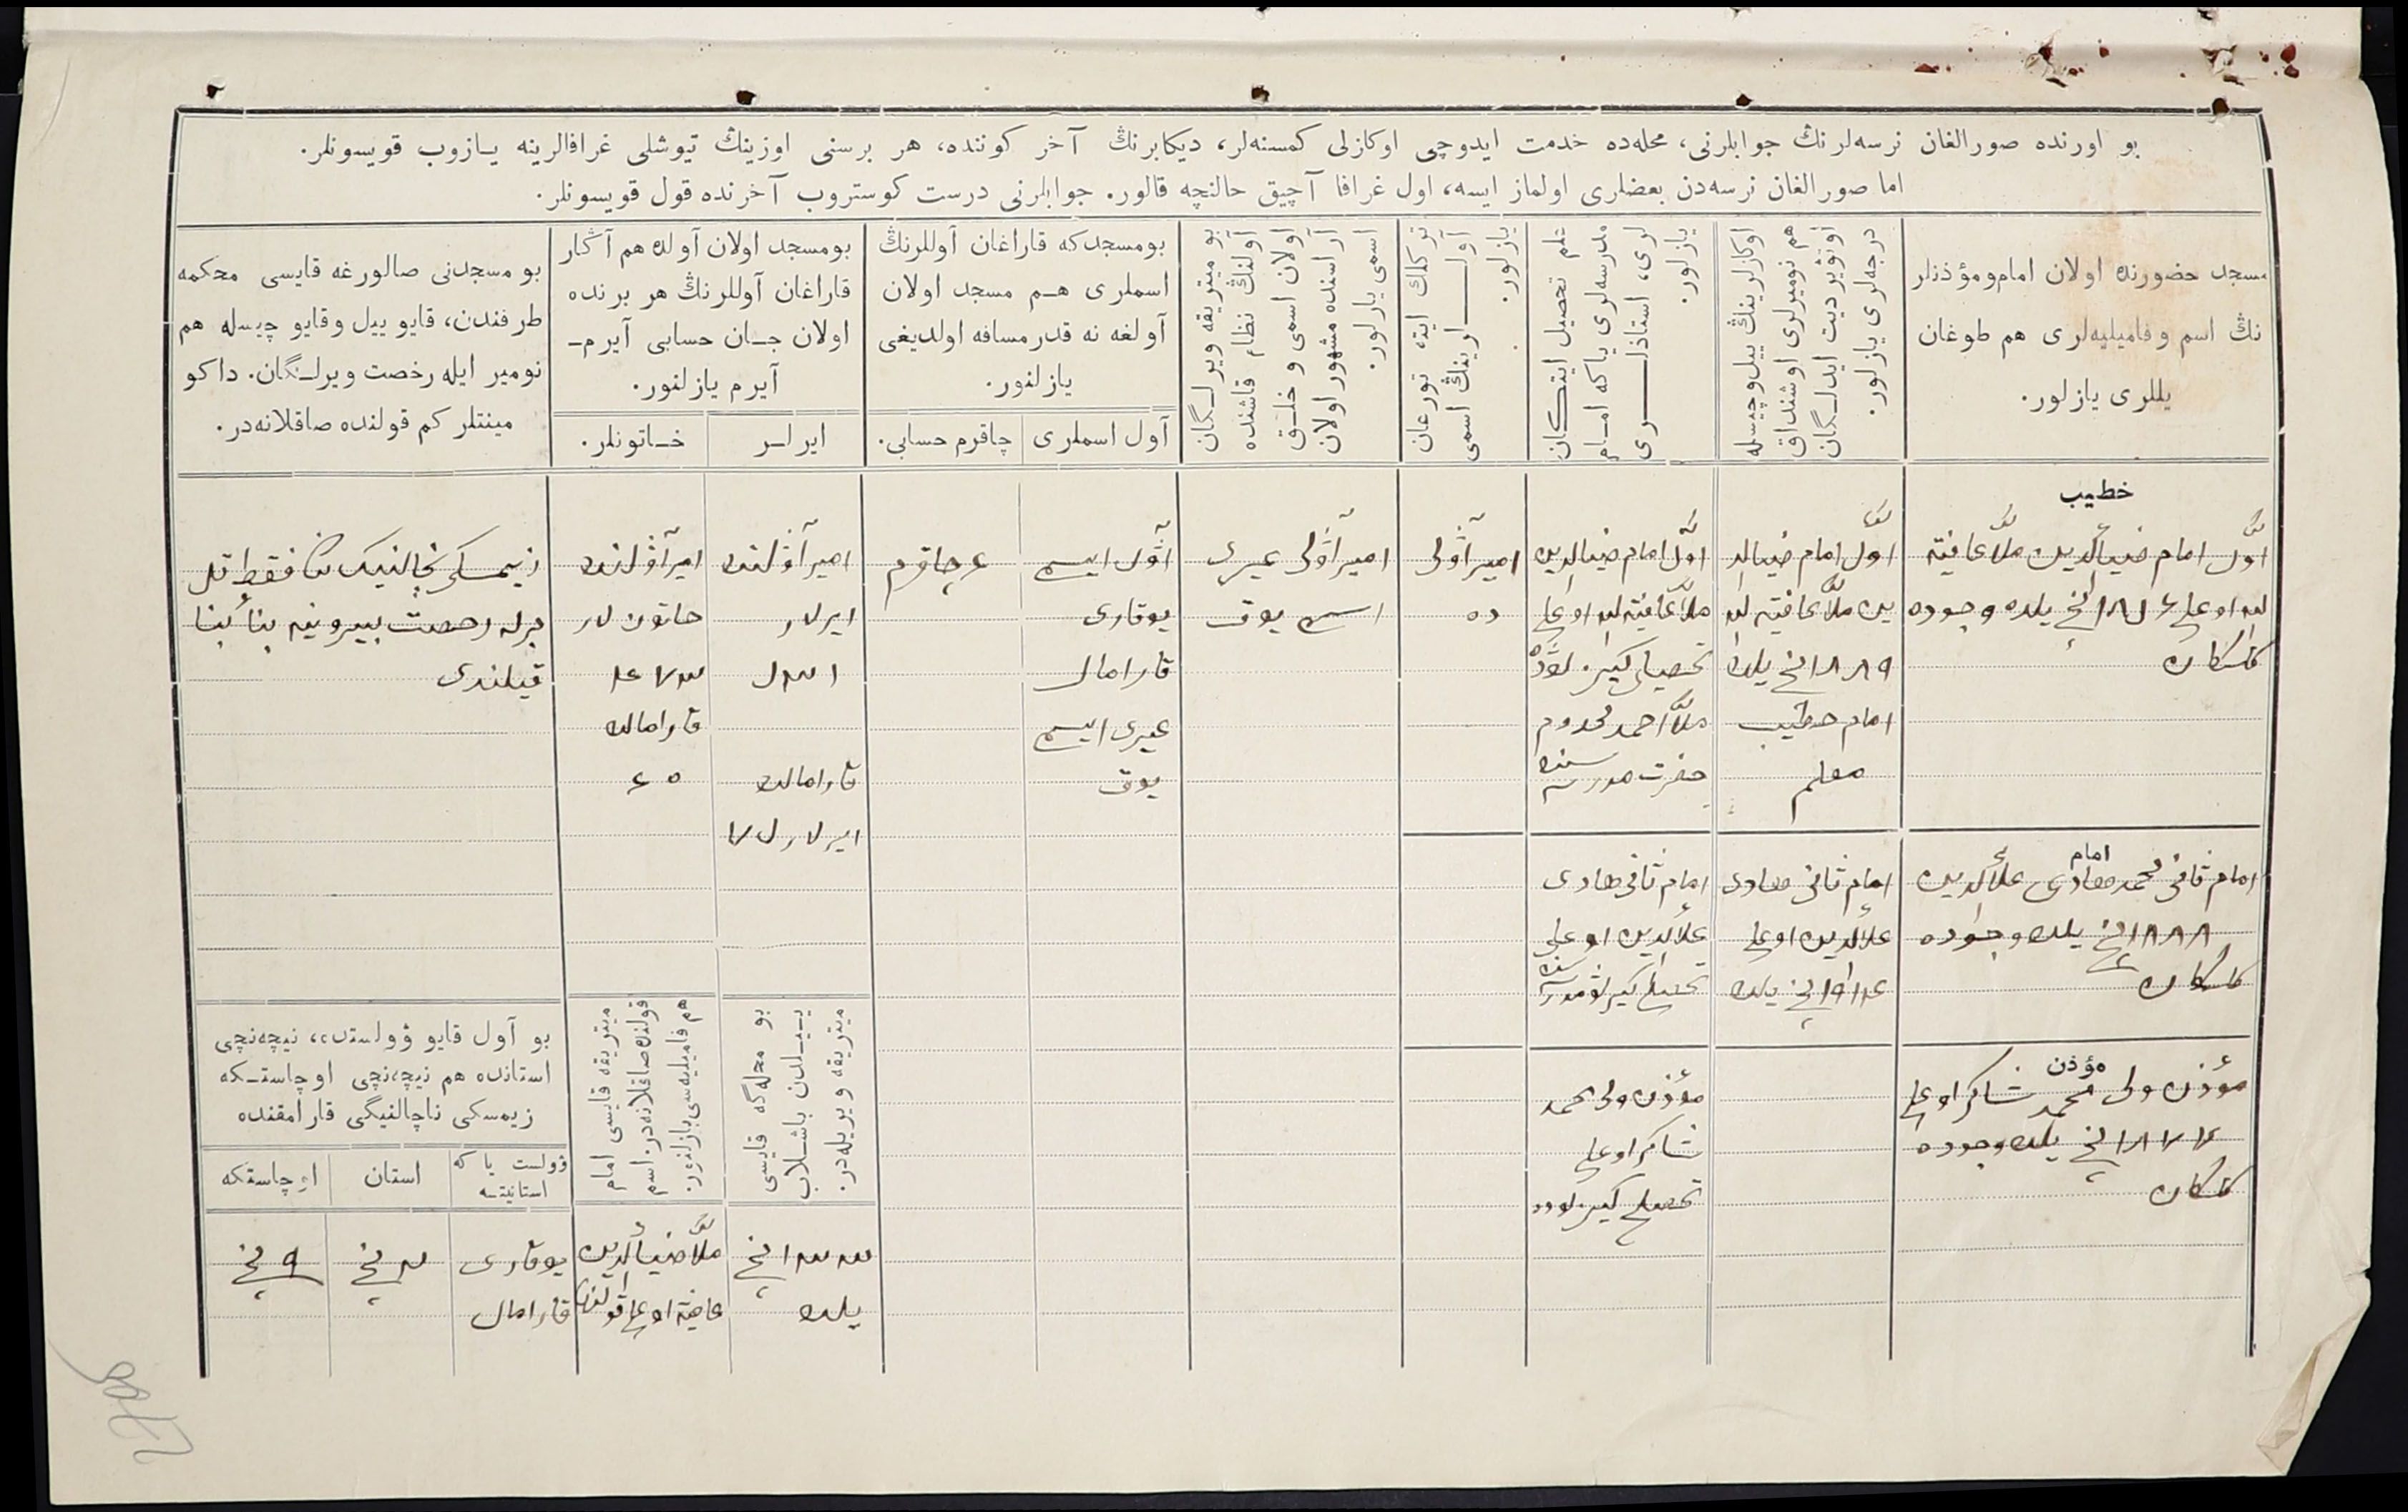 بو اورنده صورالغان نرسه‌لرنڭ جوابلرنی، محله‌ده خدمت ایدوچی اوکازلی کمسنه‌لر، دیکابرنڭ آخر کوننده، هر برسنی اوزینڭ تیوشلی غرافالرینه یازوب قویسونلر.
اما صورالغان نرسه‌دن بعضلری اولماز ایسه، اول غرافا آچیق حالنچه قالور. جوابلرنی درست کوستروب آخرنده قول قویسونلر.
مسجد حضورنده اولان امام‌ومؤذنلر
نڭ اسم وفامیلیه‌لری هم طوغان
یللری یازلور.
اوکازلرینڭ ییل‌وچیسله
هم نومیرلری اوشنداق
اونوثیردیت ایدلـگان
درجه‌لری یازلور.
علم تحصیل ایتـکان
مدرسه‌لری یاکه امـام
لری، استاذلـری
یازلور.
ترکلك ایته تورغان
آولـلرینڭ اسمی
یازلور.
بو میتریقه ویرلـگان
آولنڭ نظام قاشنده
اولان اسمی و خلـق
آراسنده مشهور اولان
اسمی یازلور.
بومسجدکه قاراغان آوللرنڭ
اسملری هـم مسجد اولان
آولغه نه قدر مسافه اولدیغی
یازلنور.
آول اسملری
چاقرم حسابی.
بومسجد اولان آوله هم آڭار
قاراغان آوللرنڭ هر برنده
اولان جـان حسابی آیرم‌ـ
آیرم یازلنور.
ایرلـر
خـاتونلر.
بو مسجدنی صالورغه قایسی محکمه
طرفندن، قایو ییل وقایو چیسله هم
نومیر ایله رخصت ویرلـگان. داکو
مینتلر کم قولنده صاقلانه‌در.
خطیب
اوّل امام ضیاٴالدین ملاّ عافیة
الله اوغلی ١٨٦٤ نچی یلده وجوده
کلسکان
اوّل امام ضیاالد
ین ملاّ عافیة الله
١٨٨٩ نچی یلده
امام خطیب
معلم
اوّل امام ضیاالدین
ملاّ عافیة الله اوغلی
ملاّ احمد مخدوم
حضرت مدرسه سنده
امیر آوْلی
ده
امیر آوْلی غیری
اسمی یوق
آوْل ایسمی
یوقاری
قارامالی
غیری ایسمی
یوق
٤ چاقرم
امیر آوْلنده
ایرلار
قارامالده
ایرلار
امیر آوْلنده
خاتون لار
قارامالده
٤٥
فقط تل
برله رحصت بیروینه بناٴ بنا
قیلندی
امام
امام ثانی محمد هادی علاٴالدین
١٨٨٨ نچی یلده وجوده
کلکان
امام ثانی هادی
علاٴالدین اوغلی
١٩١٤ نچی یلده
امام ثانی هادی
علاٴالدین اوغلی
مؤذن
مؤذن ولی محمد شاکر اوغلی
١٨٧٧ نچی یلده وجوده
کلکان
مؤذن ولی محمد
شاکر اوغلی
بو محله‌گه قایسی
ییـلدن باشـلاب
میتریقه ویریله‌در.
میتریقه قایسی امام
قولنده صاقلانه‌در. اسم
هم فامیلیه‌سی یازلنور.
بو آول قایو وْولستده، نیچه‌نچی
استانده هم نیچه‌نچی اوچاستـکه
زیمسکی ناچالنیگی قارامقنده
وْولست یاکه
استانیتسـه
استان
اوچاستکه
١٨٣٣ نچی
یلده
ملاّ ضیاٴالدین
عافیة اوغلی قولنده
یوقاری
قارامالی
٣ نچی
٩ نچی